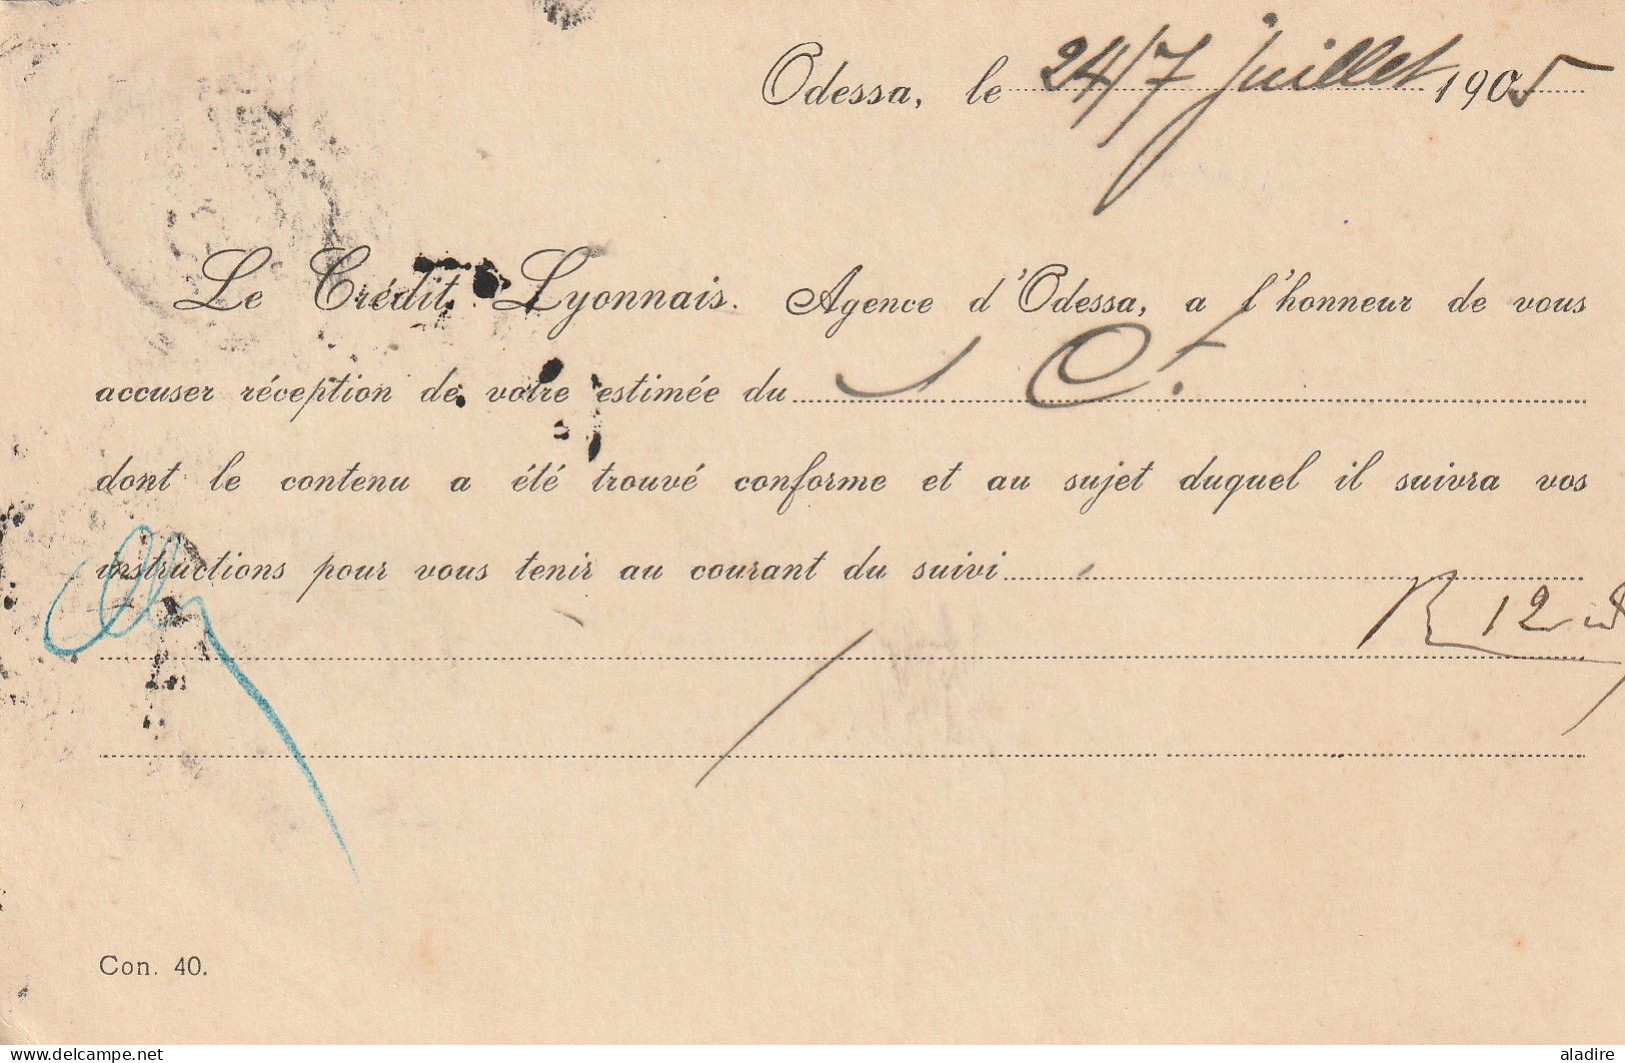 Odessa, le 24/7 Juillet 1905
Le Crédit Lyonnais. Agence d'Odessa, a l'honneur de vous
accuser réception de votre estimée du 1 Ct.
dont le contenu a été trouvé conforme et au sujet duquel il suivra vos
instructions pour vous tenir au courant du suivi
R 12
Con. 40.
delcampe.net
aladire